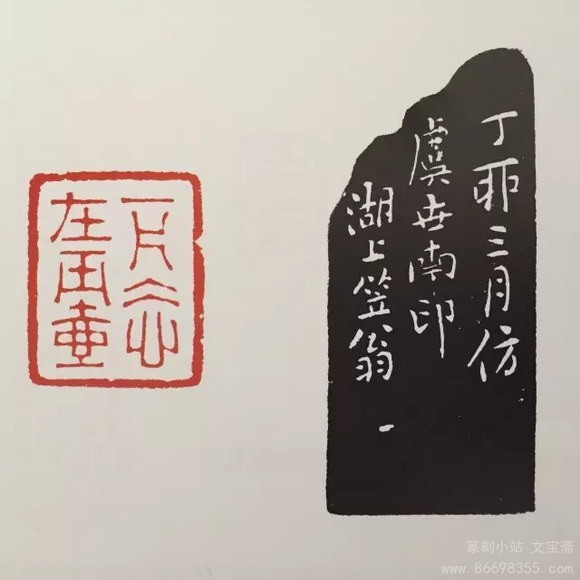 一片冰心
在玉壺
丁卯三月仿
虞世南印
湖上笠翁
篆刻小站 文宝斋
www.86698355.com